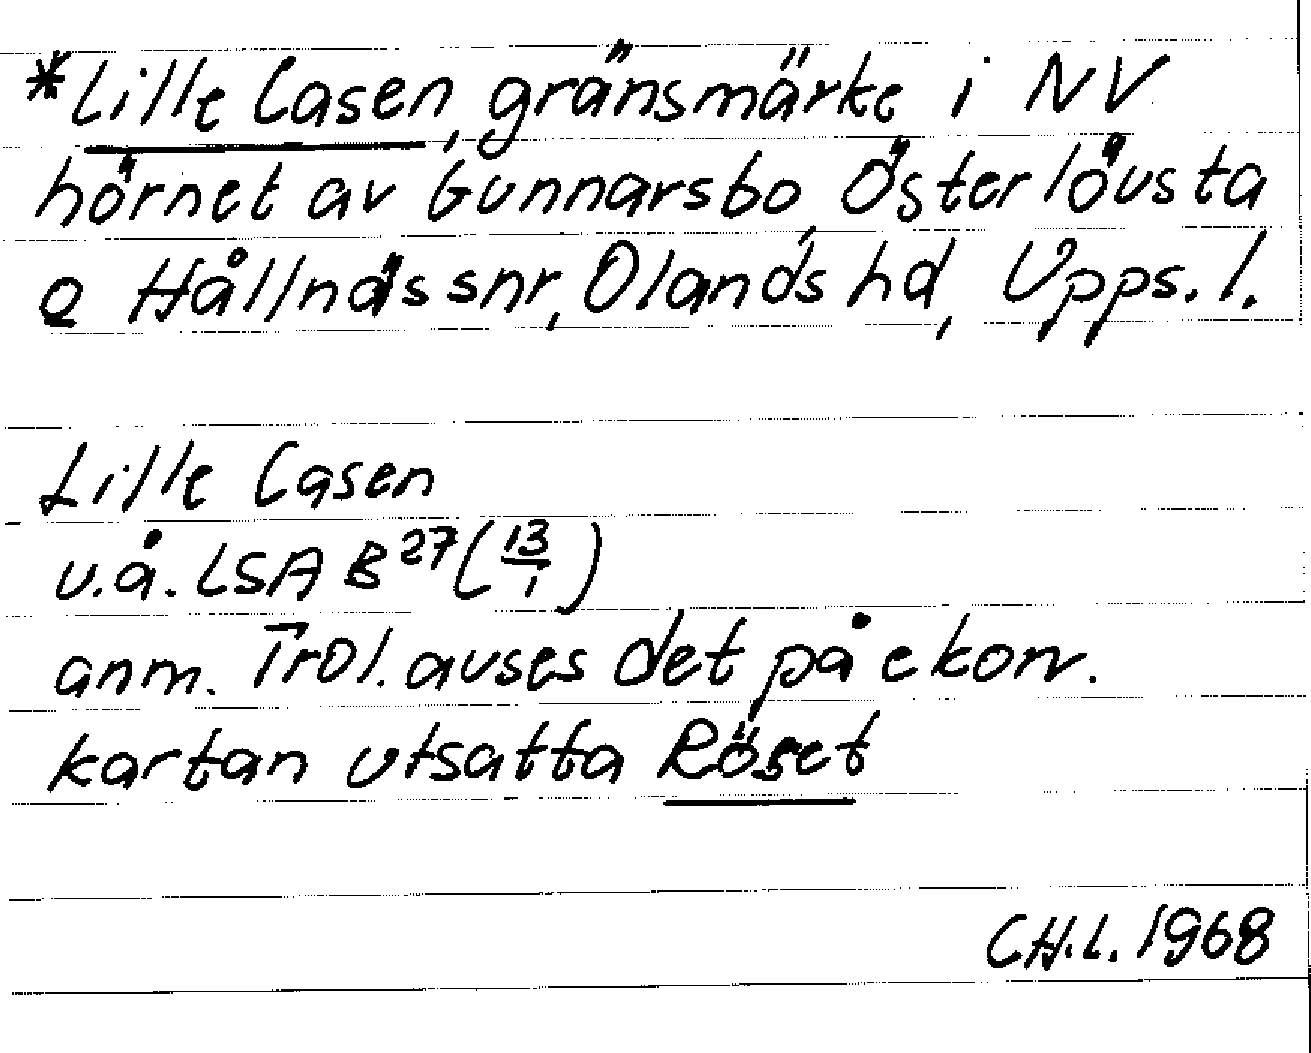 *Lille Casen, gränsmärke i NV
hörnet av Gunnarsbo, Österlövsta
o Hållnäs snr, Olands hd, Upps. l.
Lille Casen
u.å. LSA B²⁷(13/1)
anm. Trol. avses det på ekon.
kartan utsatta Röset
CH.L. 1968